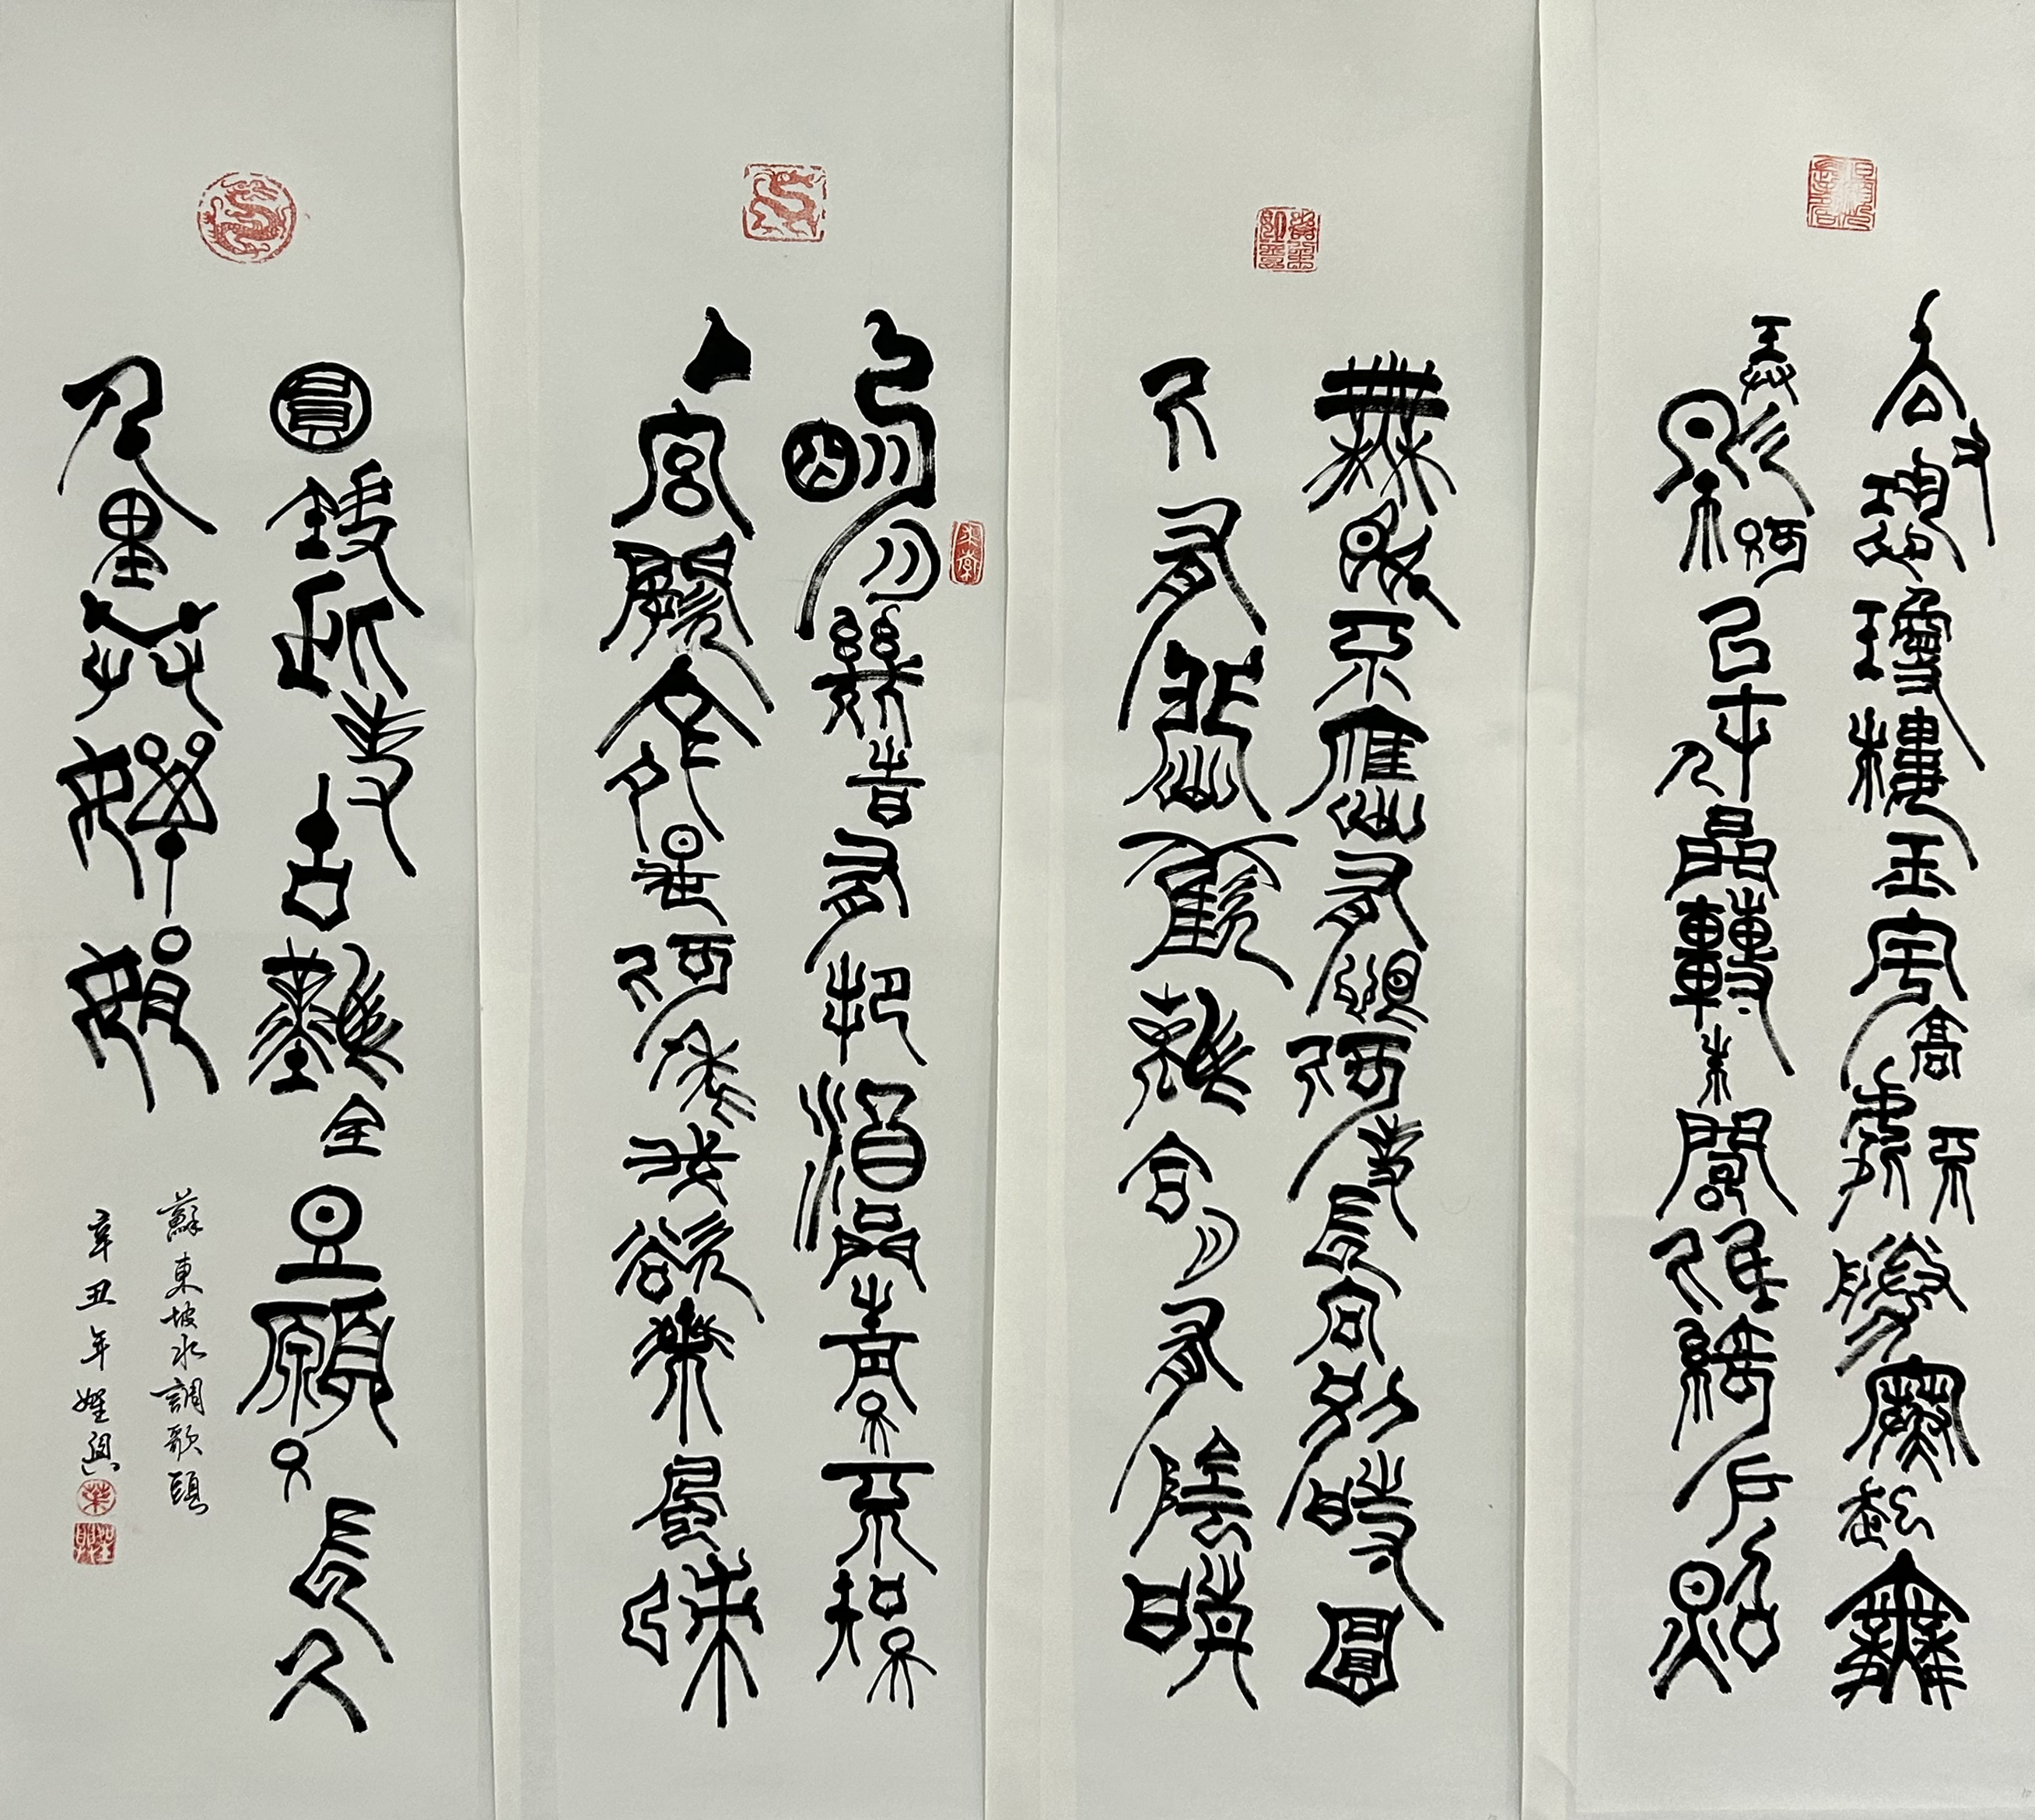 去又恐瓊樓玉宇高處不勝寒起舞
弄影何似在人間轉朱閣低綺戶照
無眠不應有恨何事長向別時圓
人有悲歡離合月有陰晴
明月幾時有把酒問青天不知天
上宮闕今夕是何年我欲乘風歸
圓缺此事古難全但願人長久
千里共嬋娟
蘇東坡水調歌頭
辛丑年